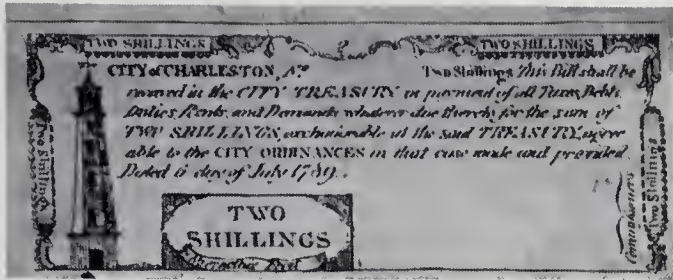 TWO SHILLINGS TWO SHILLINGS
CITY of CHARLESTON, No Two Shillings This Bill shall be
received in the CITY TREASURY in payment of all Taxes, Debts,
Duties, Rents, and Demands whatever due thereby for the sum of
TWO SHILLINGS, exchangeable at the said TREASURY, agree
able to the CITY ORDINANCES in that case made and provided.
Dated day of July 1789.
Two Shillings
TWO
SHILLINGS
Commissioners
Two Shillings